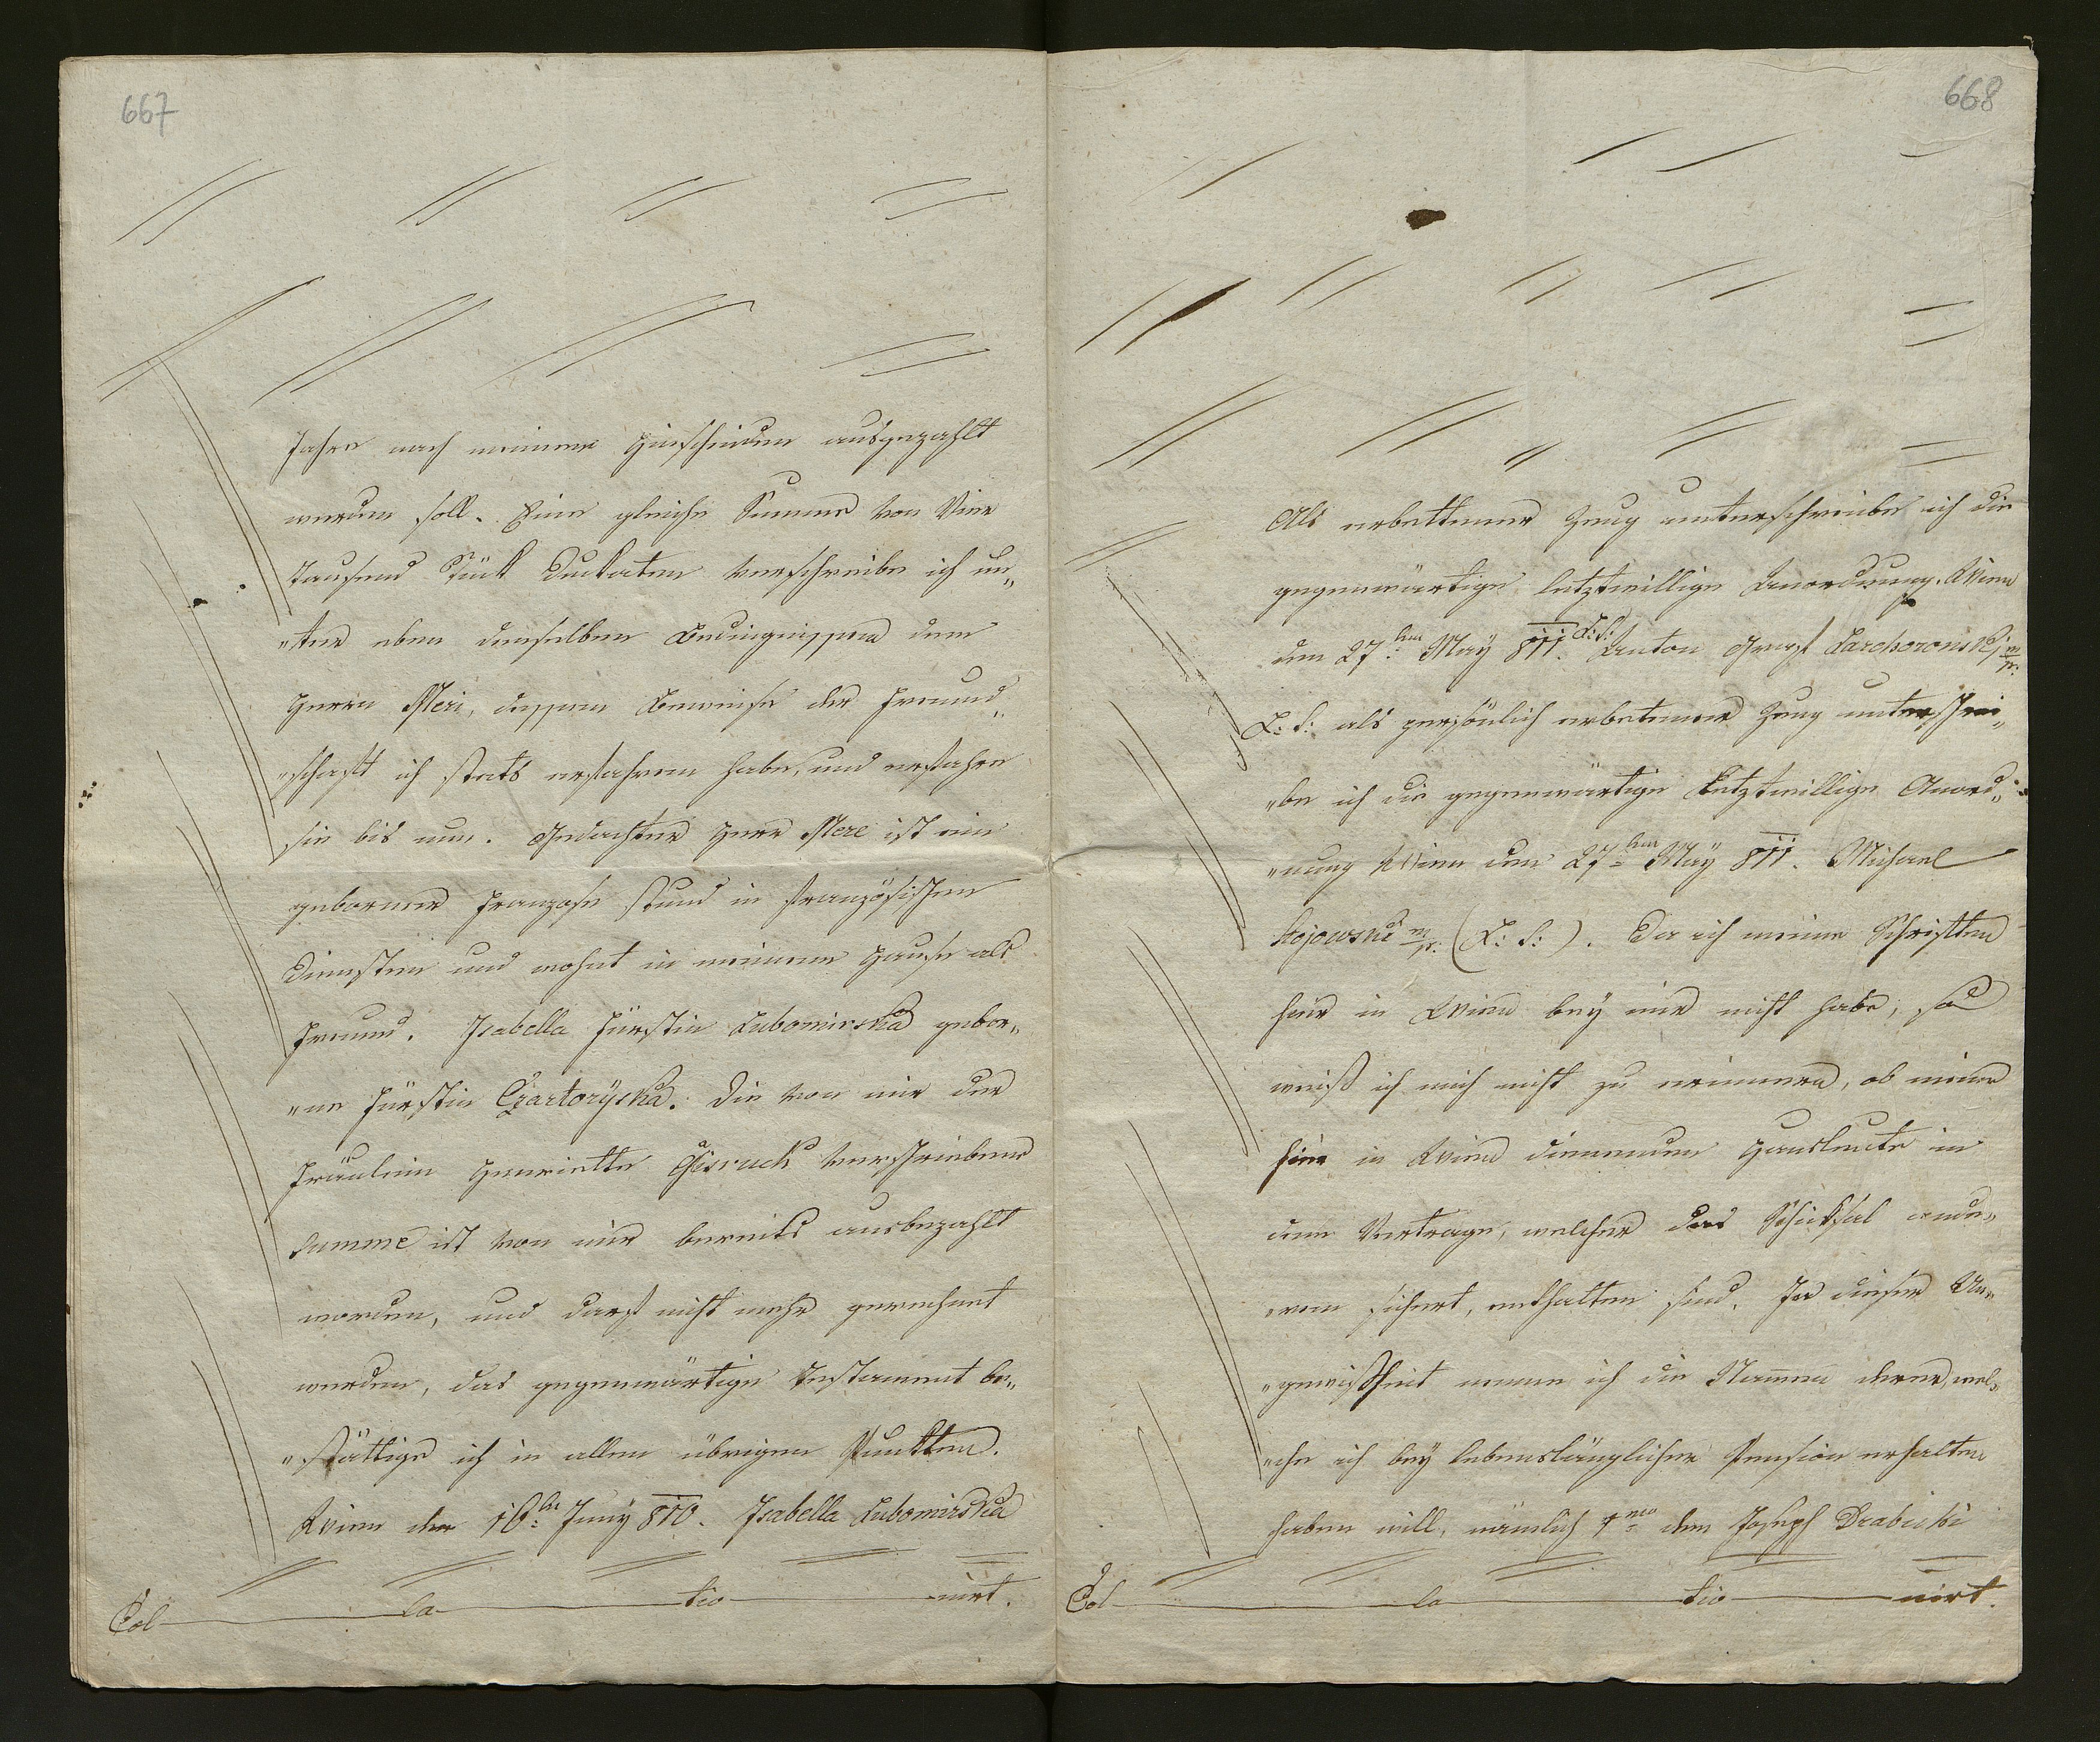 667
Jahre nach meinem Hinscheiden ausgezahlt
werden soll. Eine gleiche Summe von Vier
Tausend Stück Duckaten verschreibe ich un„
„ter eben denselben Bedingnissen dem
Herrn Meri, dessen Beweise der Freund„
„schaft ich stets erfahren habe, und erfahre
sie bis nun. Gedachter Herr Mere ist ein
geborner Franzose stund in französischen
Diensten und wohnt in meinem Hause als
Freund. Isabella Fürstin Lubomirska gebor„
„ne Fürstin Czartoryska. Die von mir der
Fräulein Henriette verschriebene
Summe ist von mir bereits ausbezahlt
worden, und darf nicht mehr gerechnet
werden, das gegenwärtige Testament be„
„stättige ich in allen übrigen Punkten.
Wien den 10: Juny 810. Isabella Lubomirska
Col la tio nirt.
668
Als erbettener Zeug unterschreibe ich die
gegenwärtige letztwillige Anordnung. Wien
den 27: May 811. L: S: Anton Graf m/p.
L: S: als persönlich erbetener Zeug unterschrei„
„be ich die gegenwärtige letztwillige Anord„
„nung Wien den 27 May 811. Michael
Stojowski m/p: (L: S:). Da ich meine Schriften
hier in Wien bey mir nicht habe, so
weiß ich mich nicht zu erinnern, ob meine
hier in Wien dienenden Hausleute in
dem Vertrage, welcher das Schicksal ande„
„ren sichert, enthalten sind. In dieser Un„
„gewißheit nenne ich die Namen derer, wel„
„che ich bey lebenslänglicher Pension erhalten
haben will, nämlich 1mo dem Joseph Drabicki
Col la tio nirt.